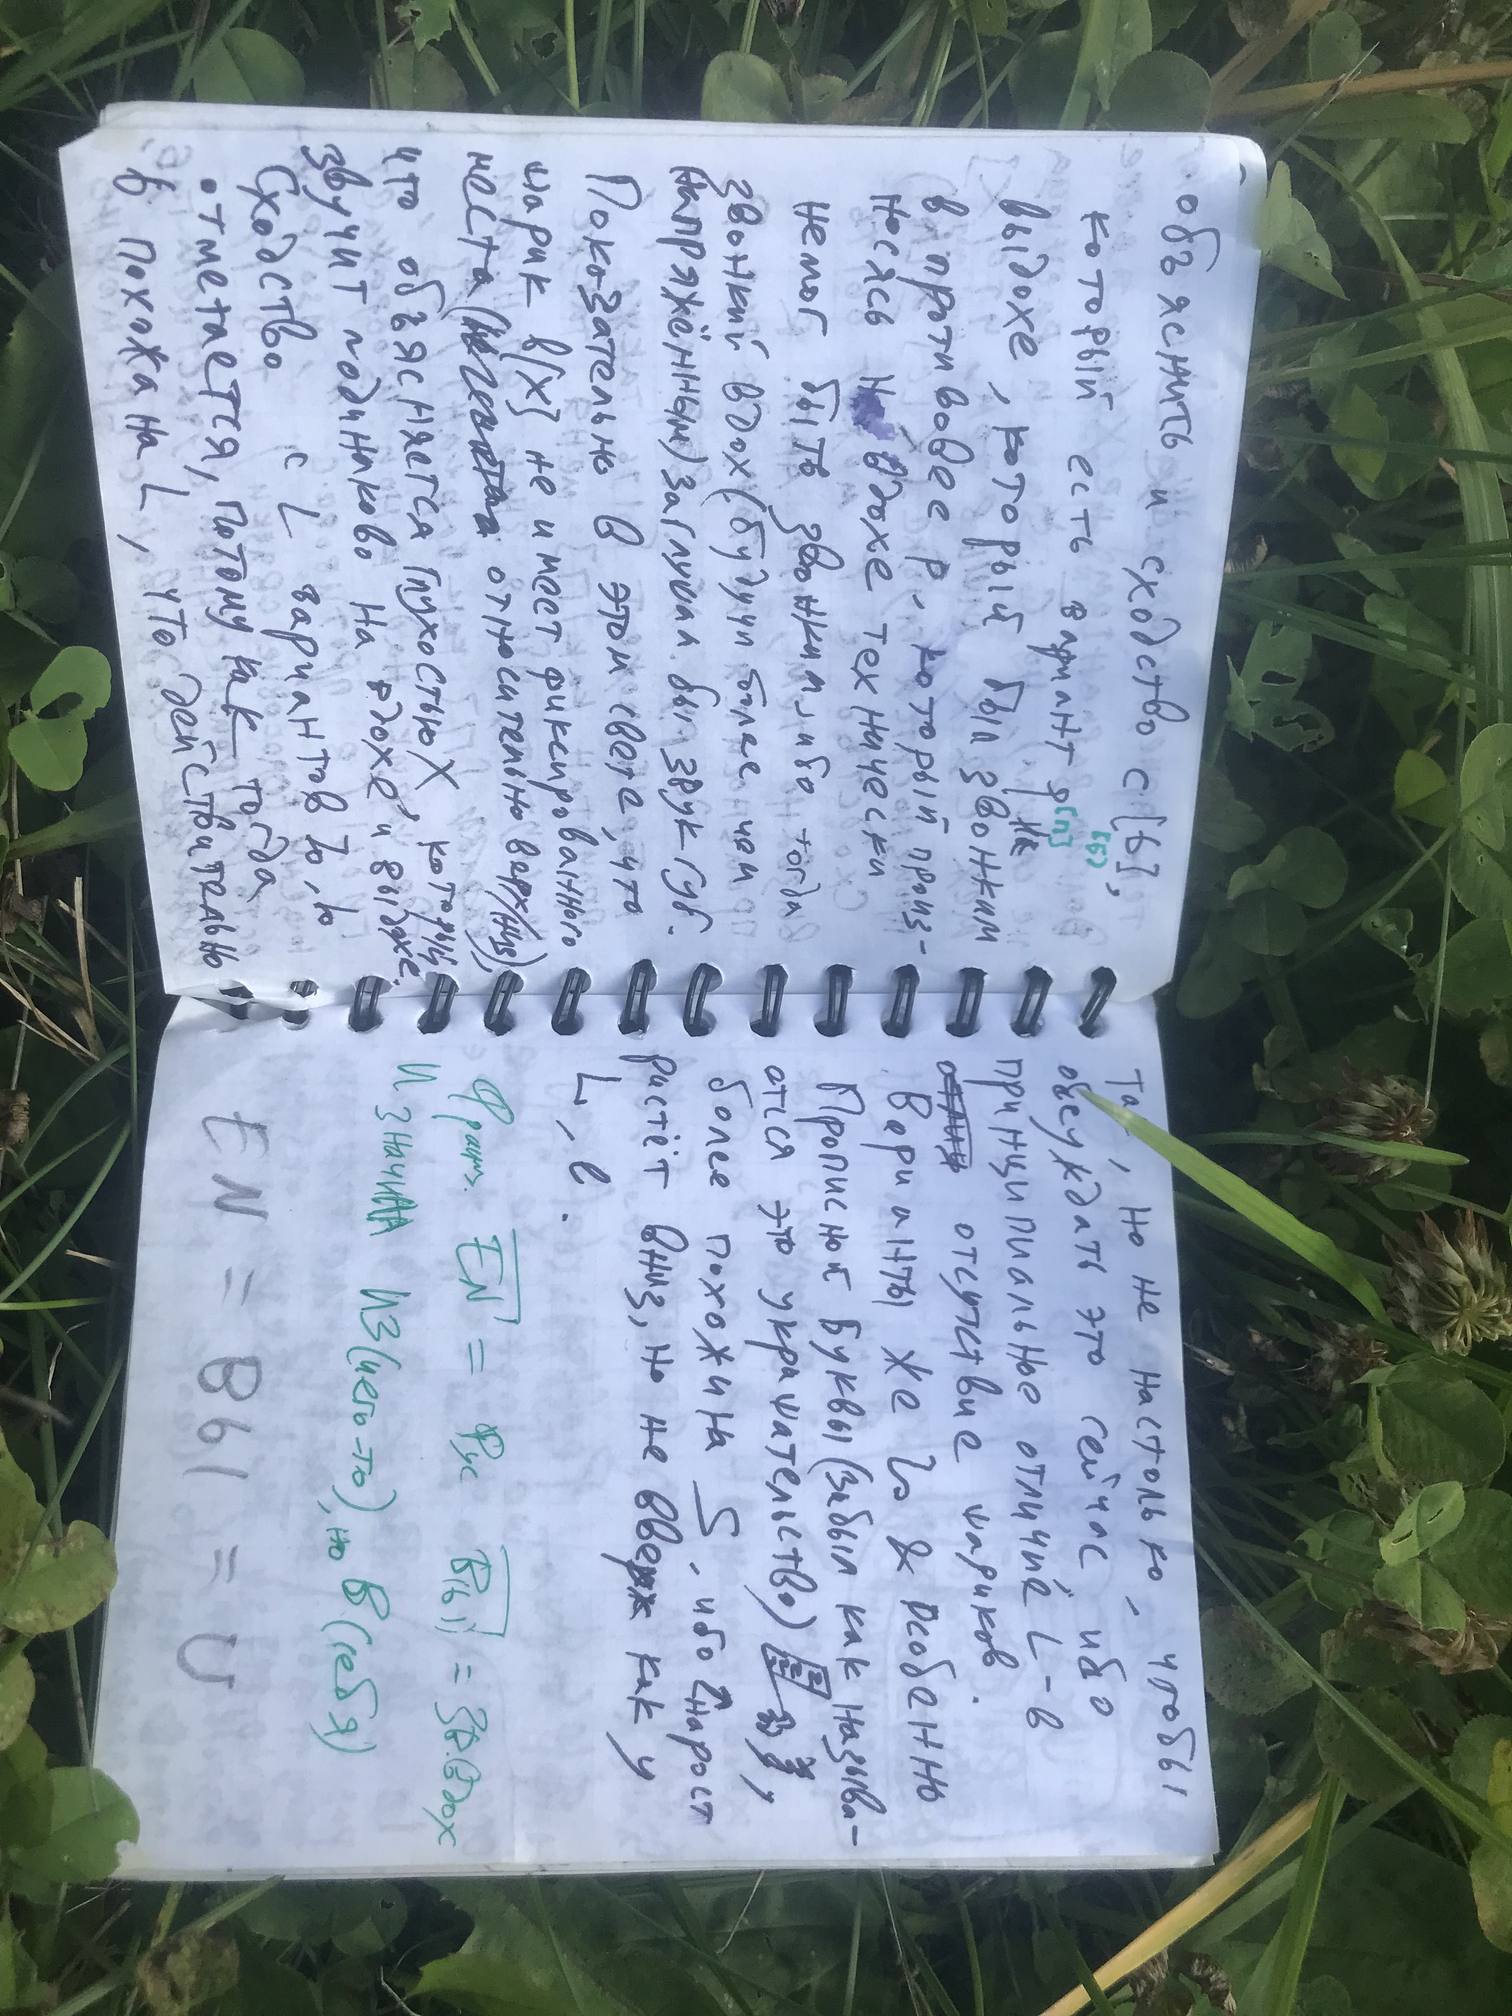 объяснить и сходство с [ь],
который есть вариант р [п] [б]
выдохе, который был не звонким
в противовес р, который произ-
носясь на вдохе технически
не мог быть звонким, ибо тогда
звонкий вдох (будучи более чем
напряжённым) заглушал бы звук губ.
Показательно в этом свете, что
шарик в [х] не имеет фиксированного
места относительно верх/низ),
что объясняется глухостью Х, который
звучит одинаково на вдохе и выдохе.
Сходство с L вариантов
отметается, потому как тогда
ь похожа на L, что действительно
так, но не настолько, чтобы
обсуждать это сейчас ибо
принципиальное отличие L-в
отсутствие шариков.
Варианты же особенно
Прописной буквы (забыл как называ-
ется это украшательство)
более похожи на S, ибо нарост
растёт вниз, но не вверх как у
L, в.
Франц. EN = Рус В(ь) = Зв. вдох
изначила ИЗ (чего-то), но В (себя)
EN = B61 = U